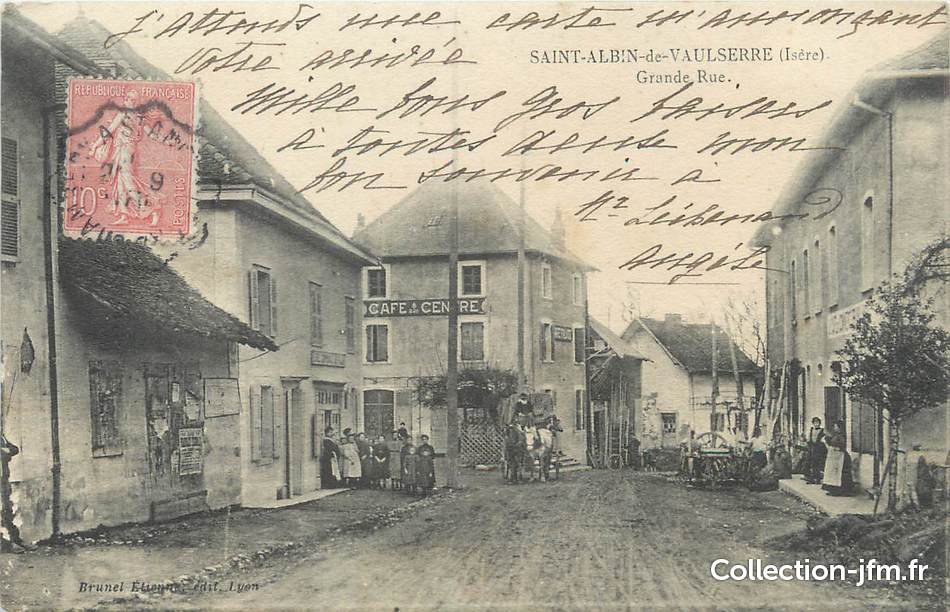 J'attends une carte m'annonçant
Votre arrivée
SAINT-ALBIN-de-VAULSERRE (Isère).
Grande Rue.
Mille bons gros baisers
à toutes deux mon
bon souvenir à
Angèle
REPUBLIQUE FRANÇAISE
10c
POSTES
CAFE DU CENTRE
Brunel Etienne, édit. Lyon
Collection-jfm.fr